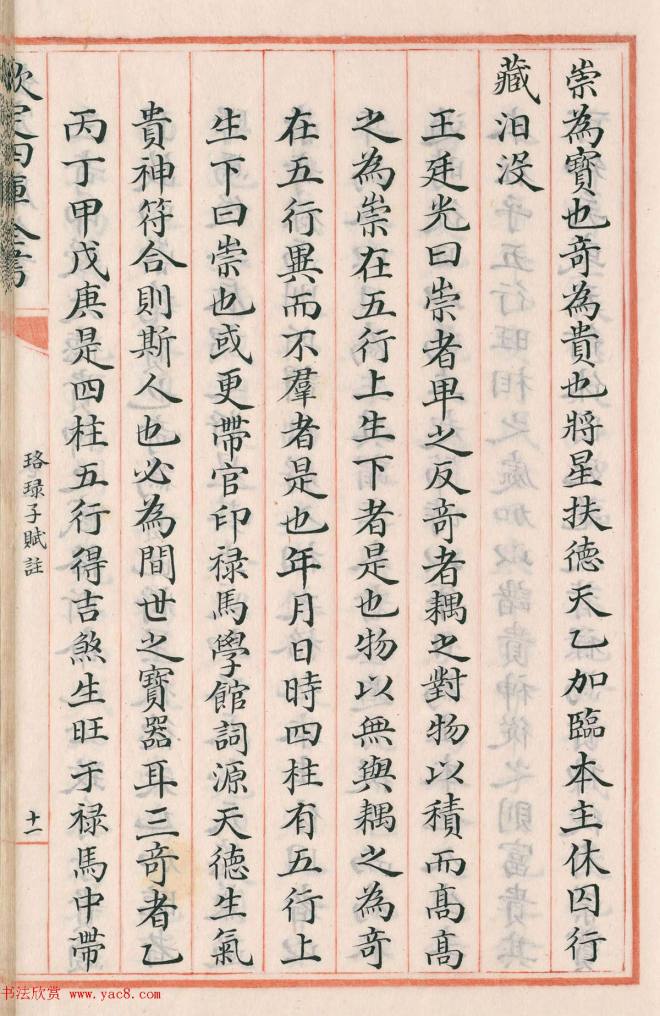 崇為寶也奇為貴也將星扶德天乙加臨本主休囚行
藏汨没
王廷光曰崇者卑之反竒者耦之對物以積而髙髙
之為崇在五行上生下者是也物以無與耦之為竒
在五行異而不羣者是也年月日時四柱有五行上
生下曰崇也或更帶官印禄馬學館詞源天德生氣
貴神符合則斯人也必為間世之寶器耳三竒者乙
丙丁甲戊庚是四柱五行得吉煞生旺于禄馬中帶
欽定四庫全書
珞琭子賦註
十一
书法欣赏 www.yac8.com